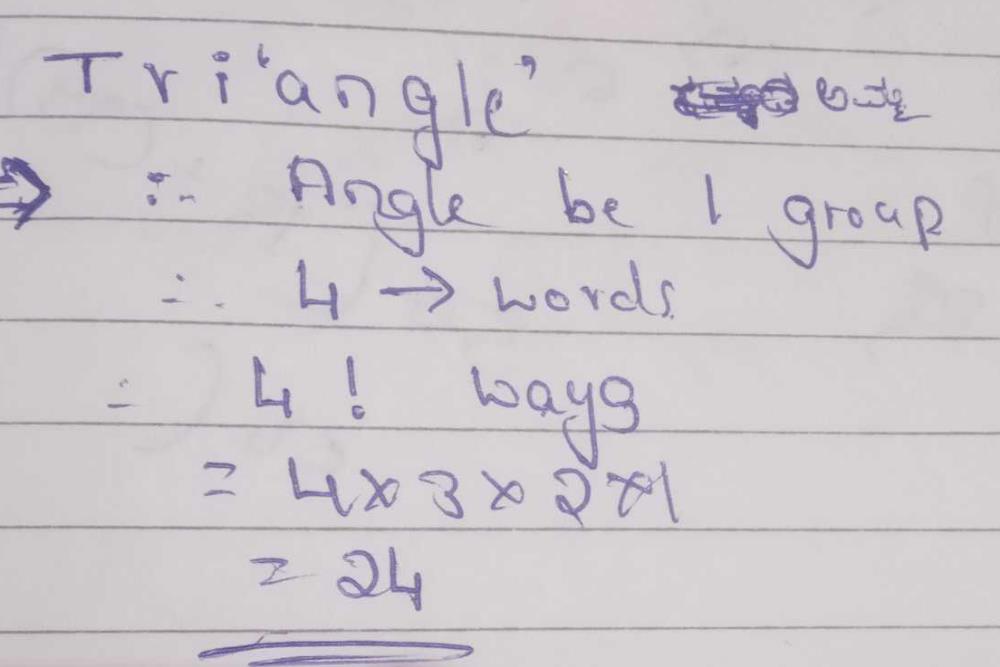 Tri'angle'
⇒ ∴ Angle be 1 group
∴ 4 → words
= 4! ways
= 4×3×2×1
= 24